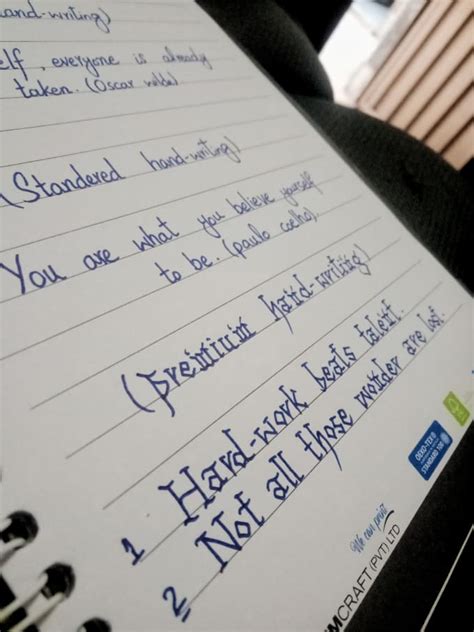 hand-writing)
elf, everyone is already
taken. (Oscar wilde)
(Standered hand-writing)
You are what you believe yourself
to be. (paulo coelho).
(premium hand-writing)
1 Hard-work beats talent.
2 Not all those wonder are lost.
OEKO-TEX®
STANDARD 100
We can print
MCRAFT (PVT) LTD